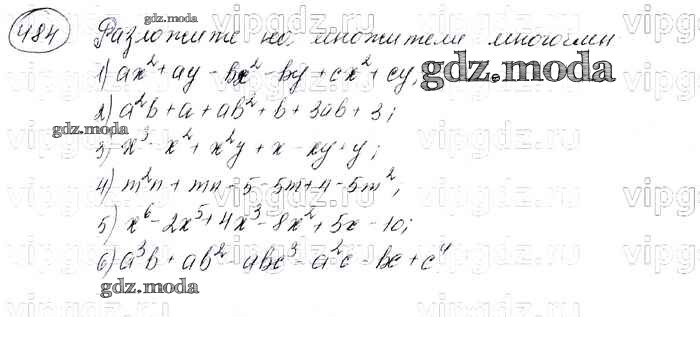 484 Разложите на множители многочлен
1) ax²+ay-bx²-by+cx²+cy,
2) a²b+a+ab²+b+3ab+3;
3) x³-x²+x²y+x-xy+y;
4) m²n+mn-5-5m+n-5m²,
5) x⁶-2x⁵+4x³-8x²+5x-10;
6) a³b+ab²-abc³-a²c-bc+c⁴
gdz.moda
gdz.moda
gdz.moda
gdz.moda
gdz.moda
vipgdz.ru